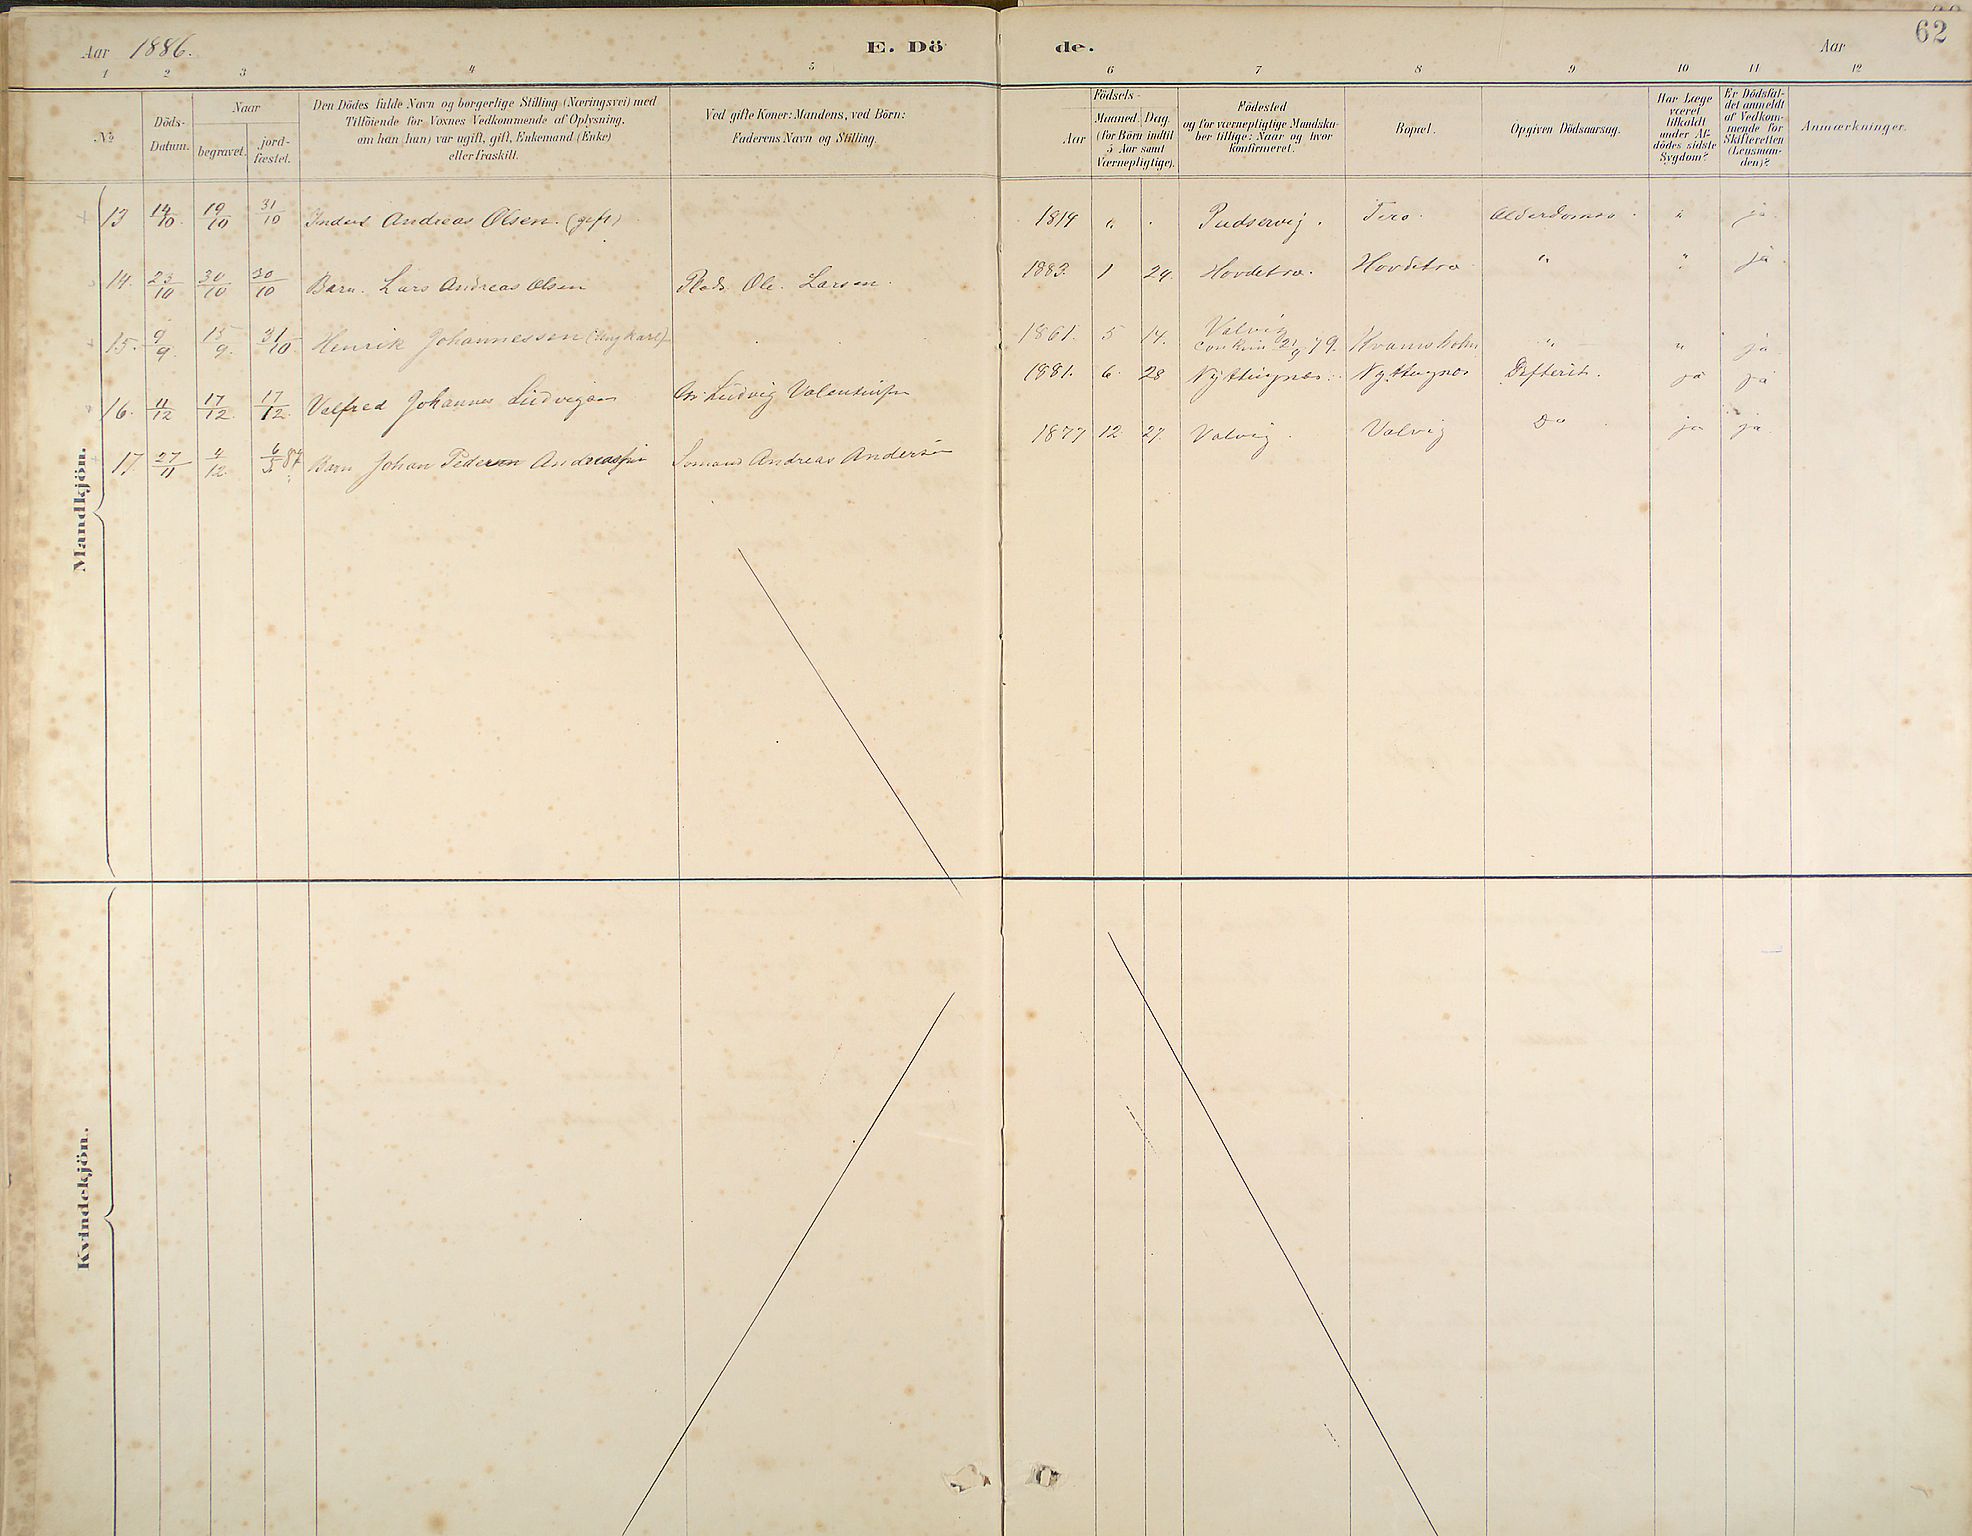 62
Aar 1886. E. Dö de. Aar
1 2 3 4 5 6 7 8 9 10 11 12
No
Döds-
Datum.
Naar
begravet.
jord-
fæstet.
Den Dödes fulde Navn og borgerlige Stilling (Næringsvei) med
Tilföiende for Voxnes Vedkommende af Oplysning,
om han (hun) var ugift, gift, Enkemand (Enke)
eller fraskilt.
Ved gifte Koner: Mandens, ved Börn:
Faderens Navn og Stilling.
Födsels-
Aar
Maaned. Dag
(for Börn indtil
5 Aar samt
Værnepligtige).
Födested
og for værnepligtige Mandska-
ber tillige: Naar og hvor
konfirmeret.
Bopæl.
Opgiven Dödsaarsag.
Har Læge
været
tilkaldt
under Af-
dödes sidste
Sygdom?
Er Dödsfal-
det anmeldt
af Vedkom-
mende for
Skifteretten
(Lensman-
den)?
Anmærkninger.
Mandkjön.
13 14/10 19/10 31/10 Andreas Olsen. (gift) 1814 " . Pudservig. Alderdoms " ja
14. 23/10 30/10 30/10 Barn. Lars Andreas Olsen Plads. Ole. Larsen. 1883. 1 24. Hovdetra. Hovdetra " " ja.
15. 9/9. 15/9. 31/10 Henrik Johannessen (Ungkarl) 1861. 5 14. Valvig 21/9 79. Kvamsholm " " ja
16. 11/12 17/12 17/12. Valfred Johannes Ludvigsen Ludvig Valentinsen 1881. 6. 28 Difterit. ja ja
17. 27/11 4/12. 6/5 87 Barn Johan Pedersen Andreassen Andreas Andersen 1877 12. 27. Valvig. Valvig Do ja ja.
Kvindekjön.